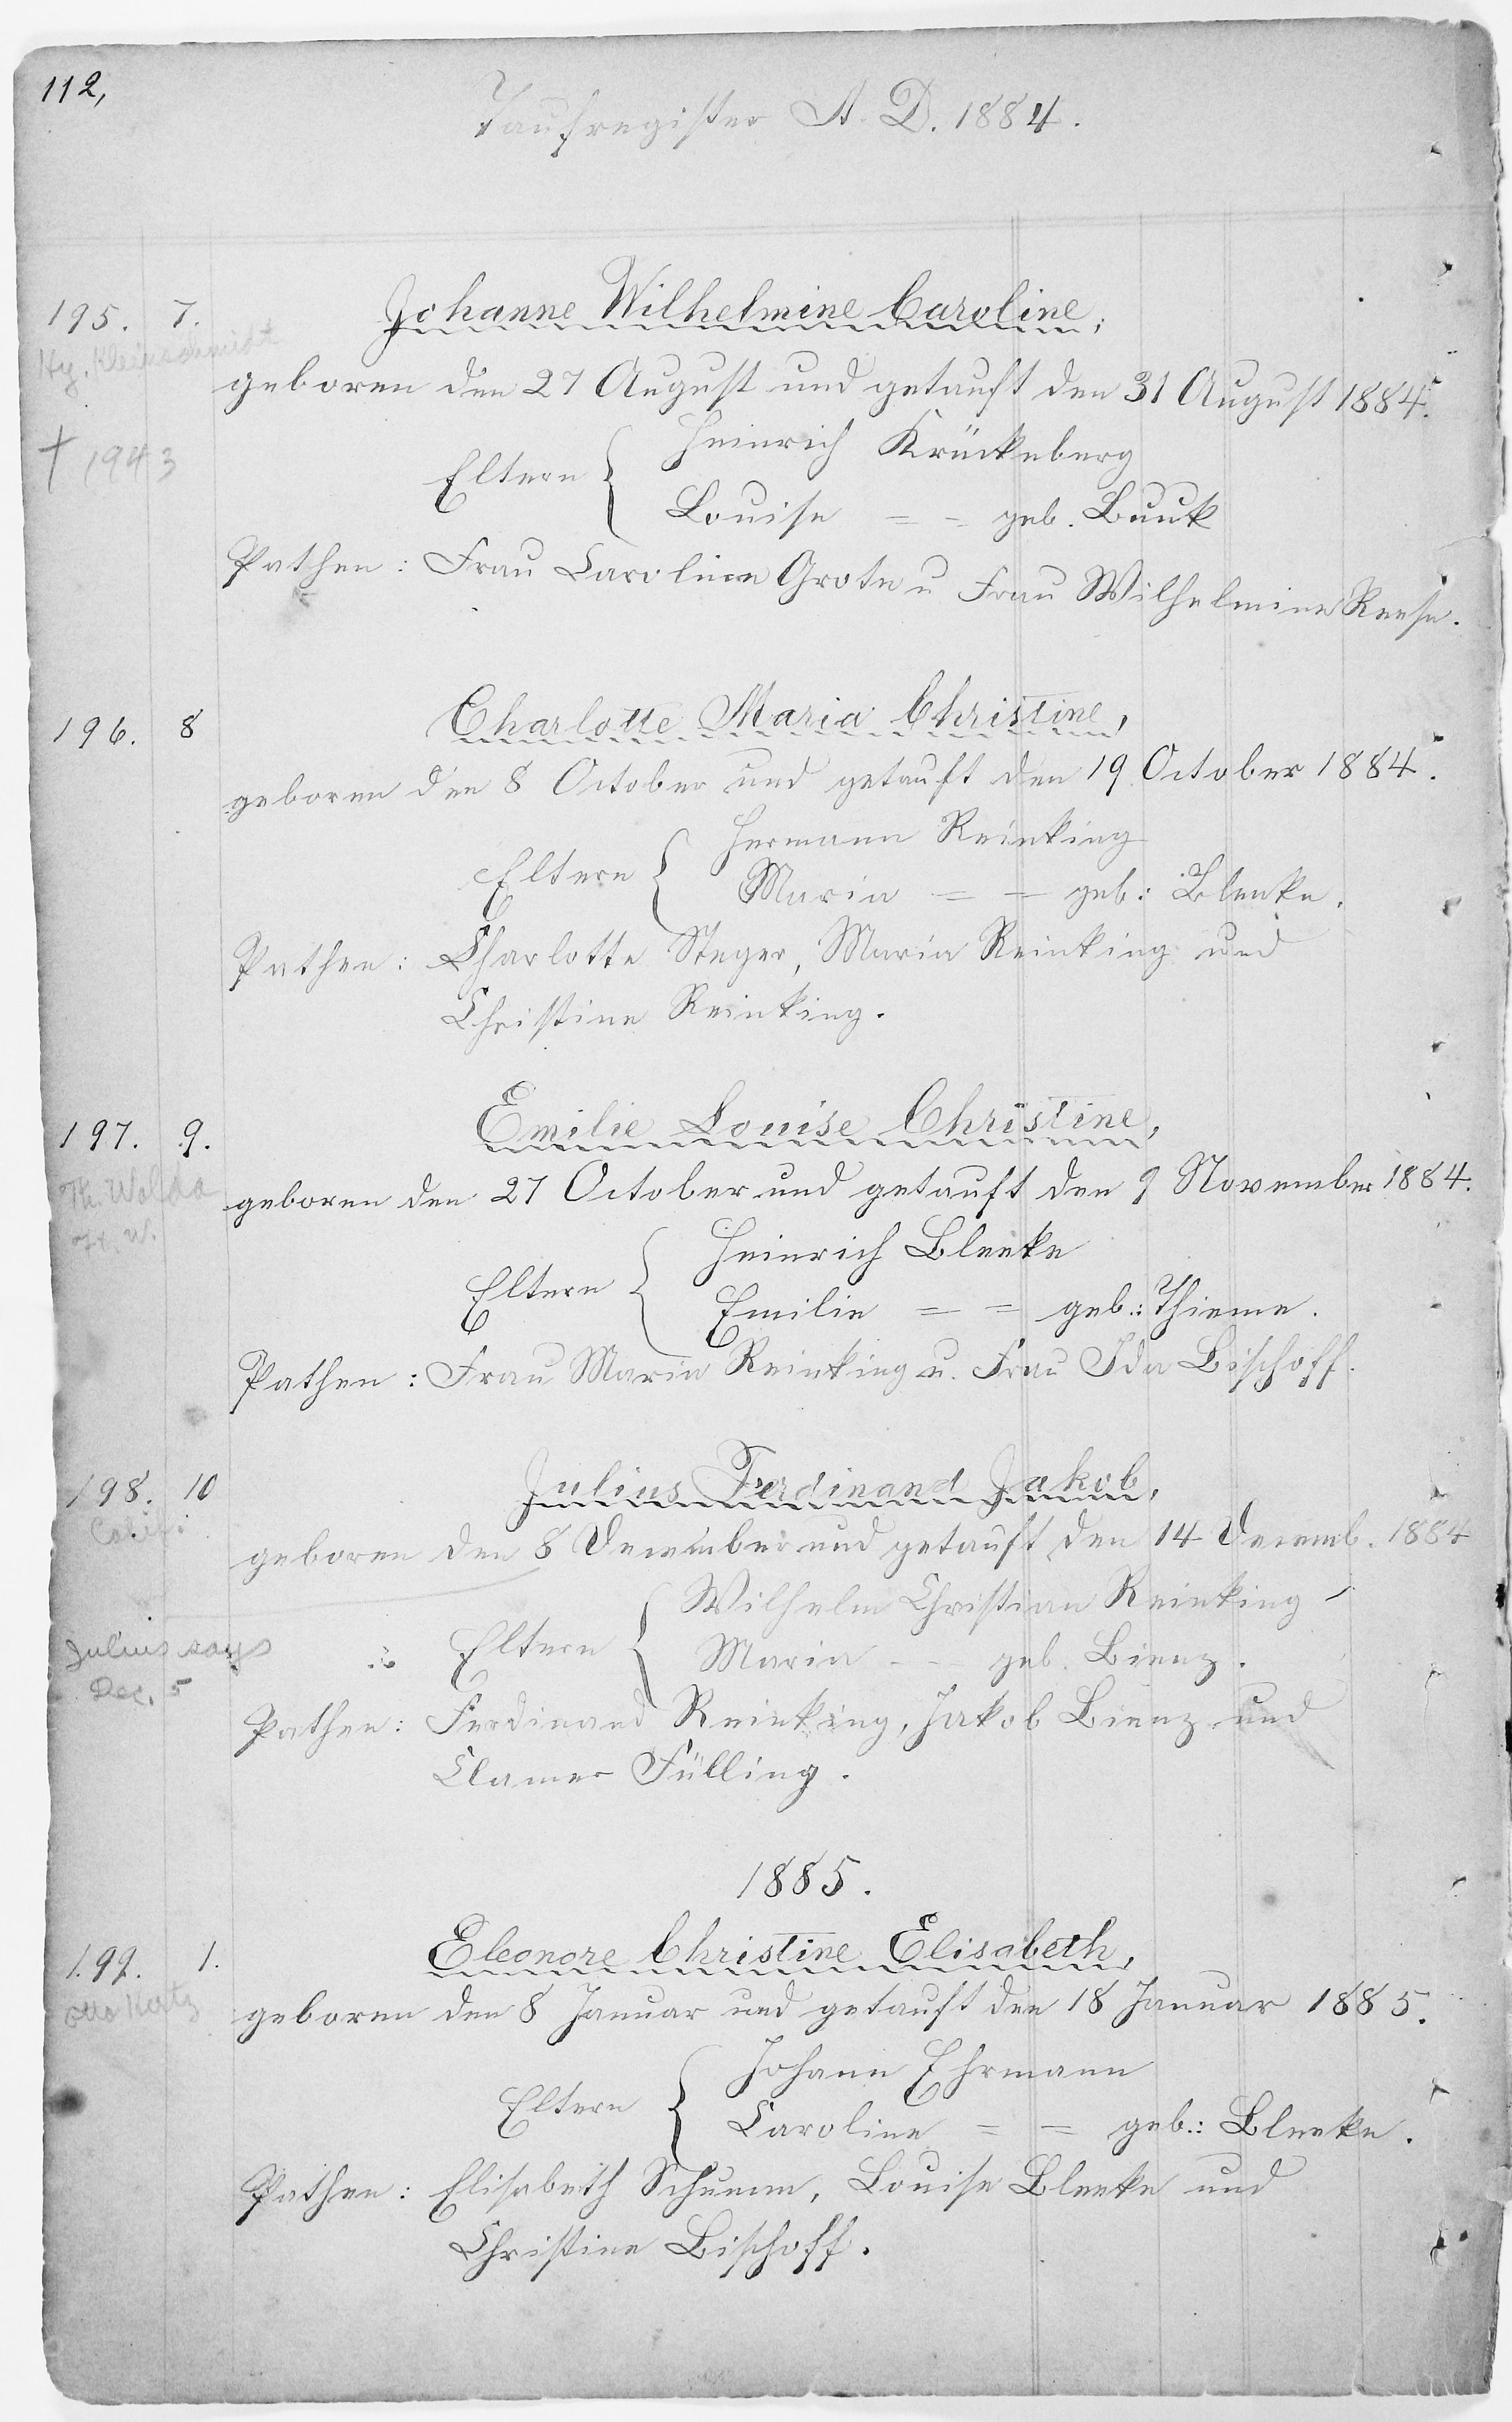 112,
Taufregister A. D. 1884.
195. 7. Johanne Wilhelmine Caroline;
Hy. Kleinschmidt
geboren den 27 August und getauft den 31 August 1884.
† 1943
Eltern { Heinrich Krückeberg
Louise = = geb. Buuk
Pathen: Frau Caroline Grote u Frau Wilhelmine Reese.
196. 8 Charlotte Maria Christine,
geboren den 8 October und getauft den 19 October 1884.
Eltern { Hermann Reinking
Maria = = geb: Bleeke.
Pathen: Charlotte Steger, Maria Reinking und
Christine Reinking.
197. 9. Emilie Louise Christine,
Th. Walda
Ft. W.
geboren den 27 October und getauft den 9 November 1884.
Eltern { Heinrich Bleeke
Emilie = = geb: Thieme.
Pathen: Frau Maria Reinking u. Frau Ida Bischoff.
198. 10 Julius Ferdinand Jakob,
Calif.
geboren den 8 December und getauft den 14 Decemb. 1884
Julius says
Dec. 5
Eltern { Wilhelm Christian Reinking
Maria - - geb. Bienz.
Pathen: Ferdinand Reinking, Jakob Bienz und
Clamer Fülling.
1885.
199. 1. Eleonore Christine Elisabeth,
Otto Kortz
geboren den 8 Januar und getauft den 18 Januar 1885.
Eltern { Johann Ehrmann
Caroline = = geb: Bleeke.
Pathen: Elisabeth Schumm, Louise Bleeke und
Christine Bischoff.